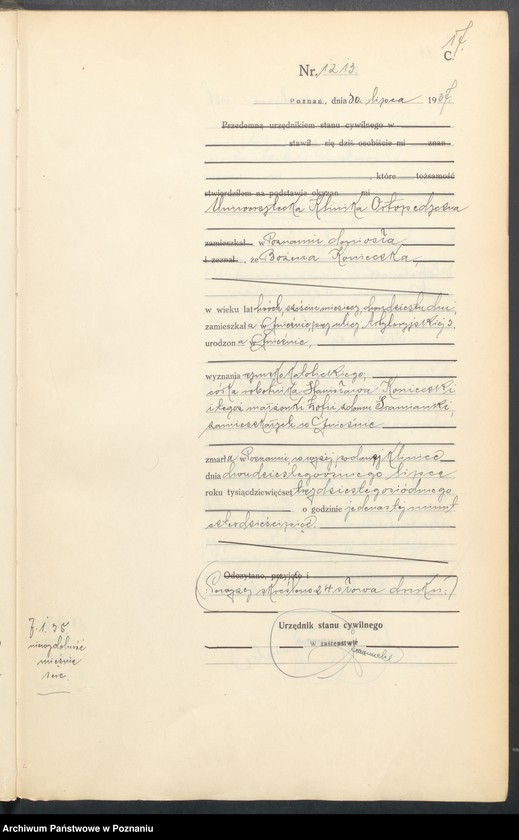 17.
C.
Nr. 1213.
Poznań, dnia 30. lipca 1937.
Przedemną urzędnikiem stanu cywilnego w
stawił się dziś osobiście mi znan
, które tożsamość
stwierdziłem na podstawie okazan mi
Uniwersytecka Klinika Ortopedyczna
zamieszkał w Poznaniu doniosła
i zeznał , że Bożena Konieczka,
w wieku lat dwóch, sześciu miesięcy, dwudziestu dni,
zamieszkała w Gnieźnie, przy ulicy Artyleryjskiej 3.
urodzona w Gnieźnie,
wyznania rzymsko katolickiego,
córka robotnika Stanisława Konieczki
i tegoż małżonki Zofii z domu
zamieszkałych w Gnieźnie
zmarła w Poznaniu, w wyżej podanej Klinice
dnia dwudziestego ósmego lipca
roku tysiącdziewięćset trzydziestego siódmego
o godzinie jedenastej minut
czterdzieści pięć.
Odczytano, przyjęto i
(Powyżej skreślono 24 słowa druku.)
Urzędnik stanu cywilnego
w zastępstwie
niezdolność
mięśnia
serc.
Archiwum Państwowe w Poznaniu